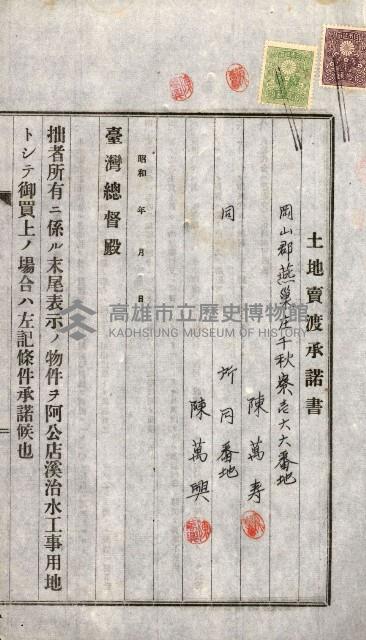 土地賣渡承諾書
岡山郡燕巢庄千秋寮壱六六番地
陳萬寿
同 所同番地
陳萬興
昭和 年 月 日
臺灣總督殿
拙者所有ニ係ル末尾表示ノ物件ヲ阿公店溪治水工事用地
トシテ御買上ノ場合ハ左記條件承諾候也
高雄市立歷史博物館
KAOHSIUNG MUSEUM OF HISTORY